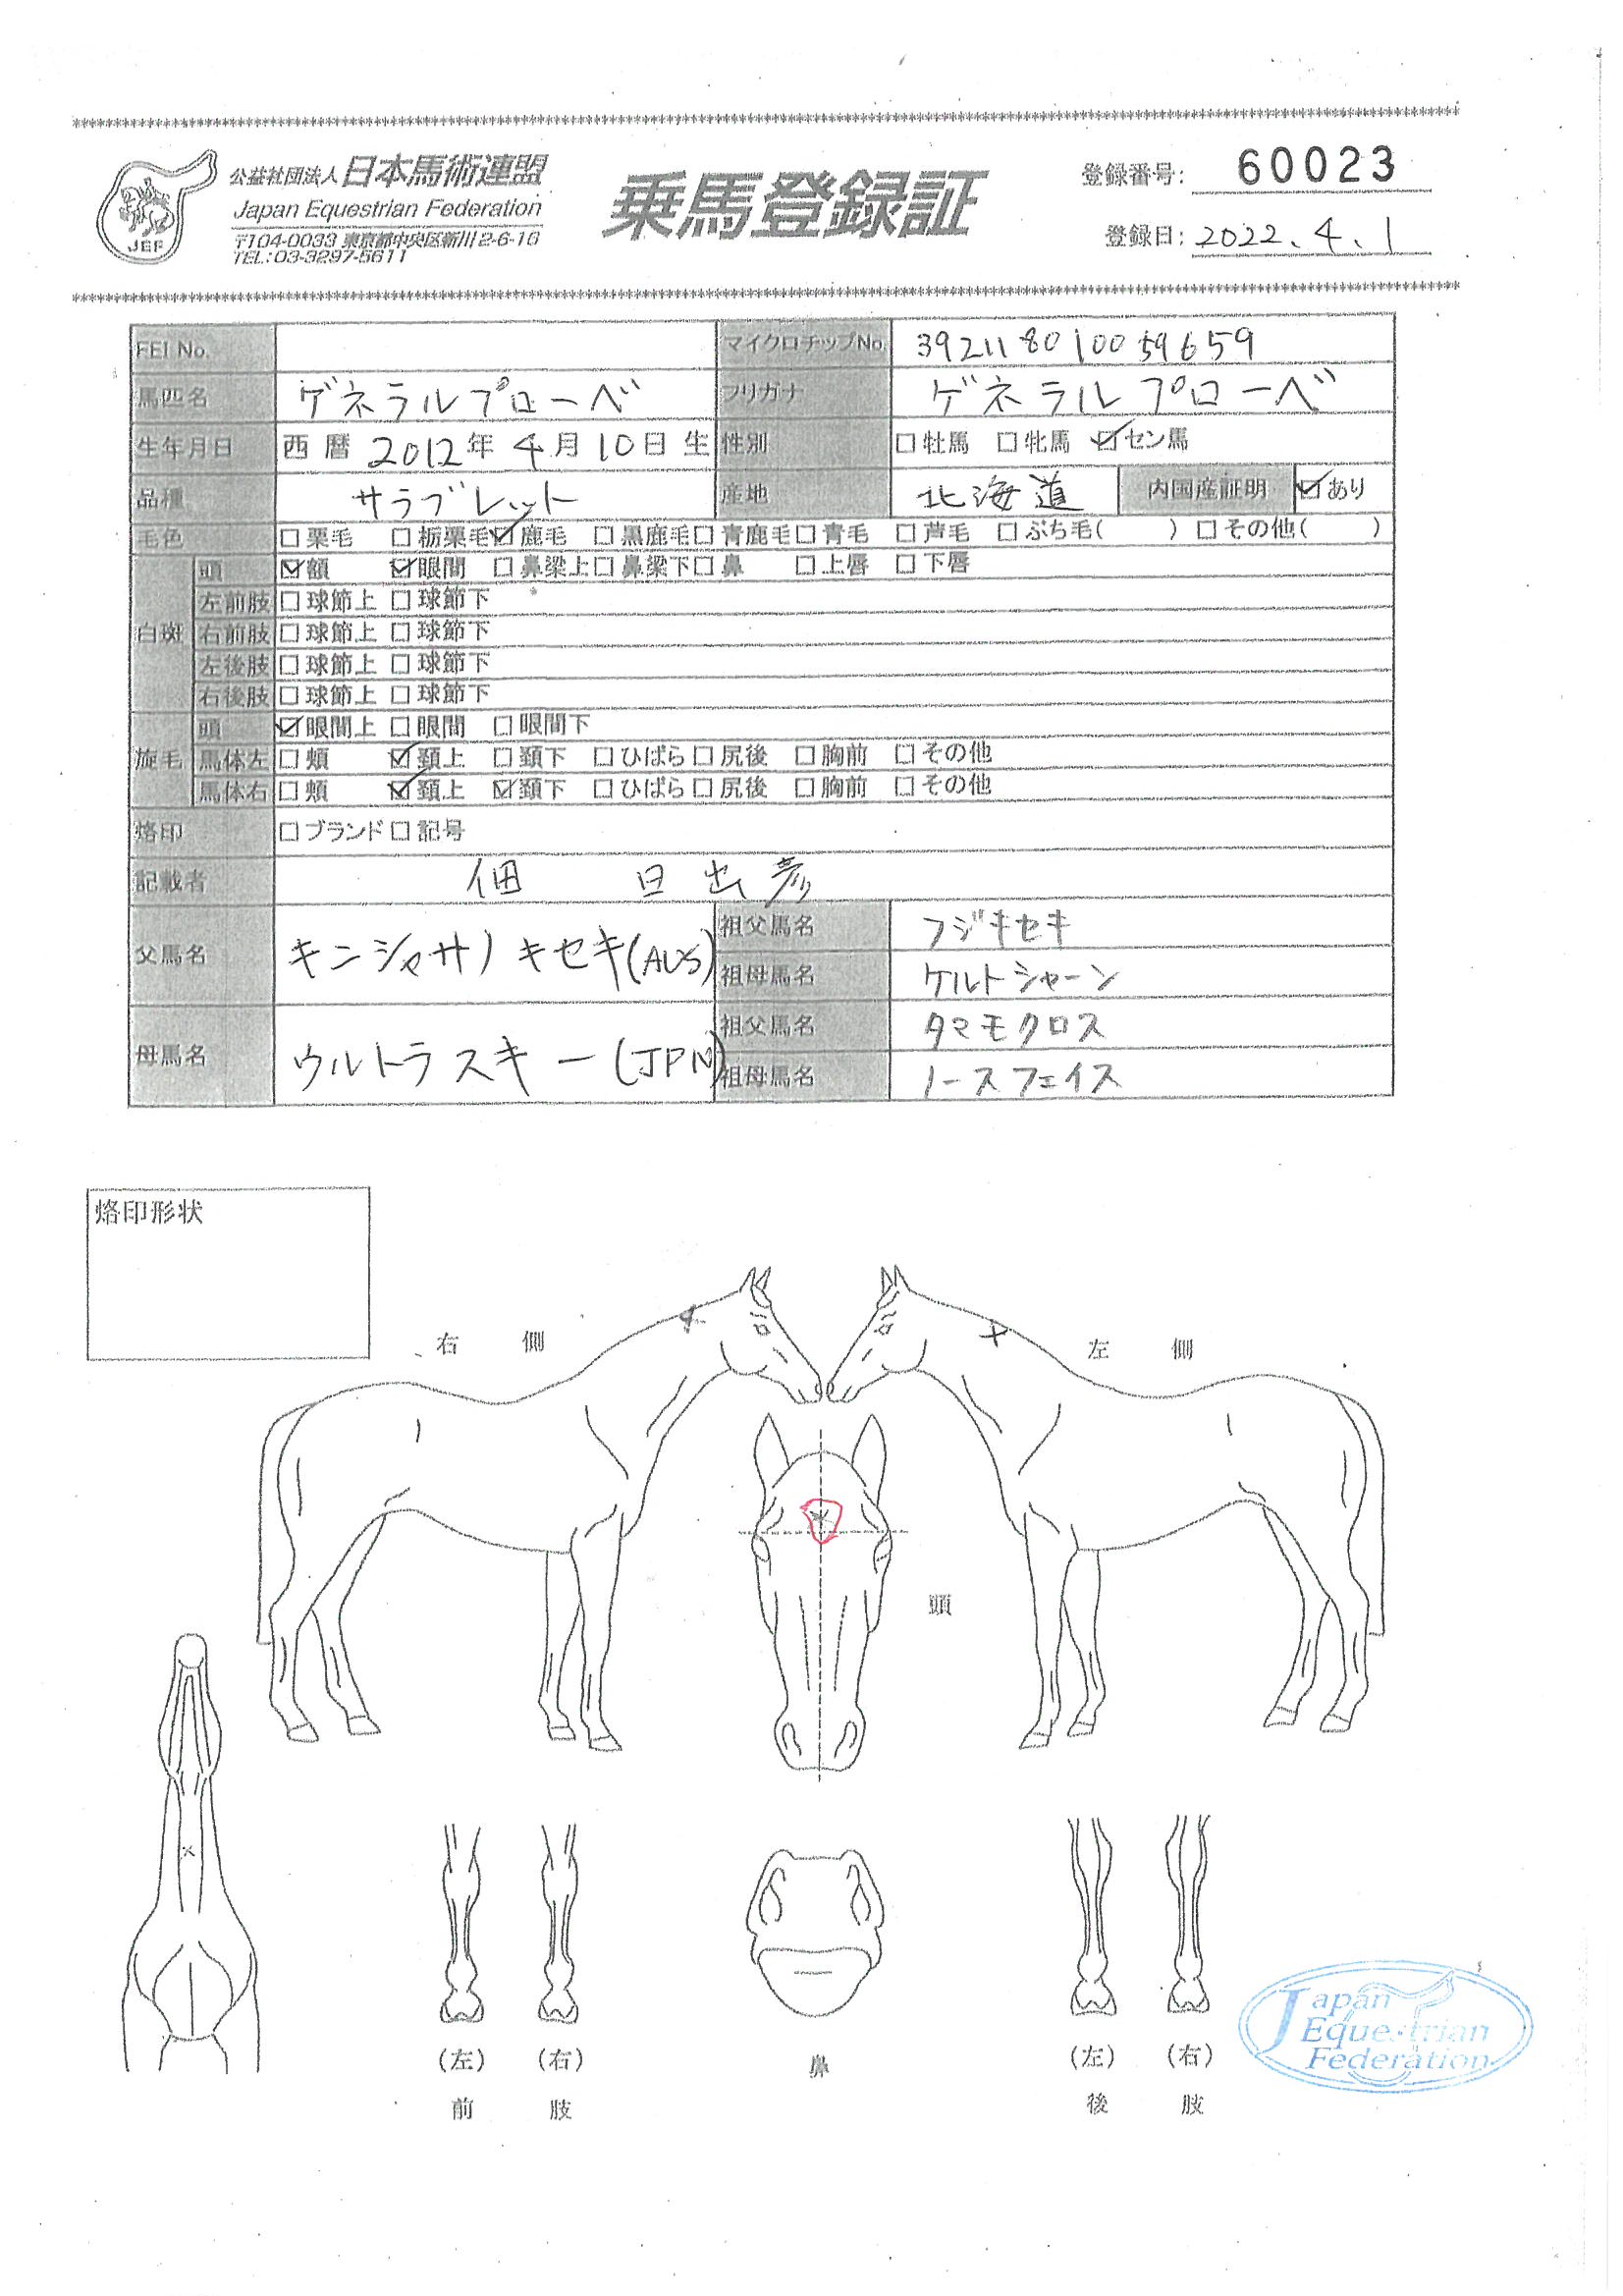 公益社団法人 日本馬術連盟
Japan Equestrian Federation
〒104-0033 東京都中央区新川2-6-16
TEL:03-3297-5611
JEF
乗馬登録証
登録番号: 60023
登録日: 2022.4.1
FEI No. マイクロチップNo. 392118010059659
馬匹名 ゲネラルプローベ フリガナ ゲネラルプローベ
生年月日 西暦 2012年 4月 10日生 性別 □牡馬 □牝馬 ☑セン馬
品種 サラブレット 産地 北海道 内国産証明 ☑あり
毛色 □栗毛 □栃栗毛 ☑鹿毛 □黒鹿毛 □青鹿毛 □青毛 □芦毛 □ぶち毛( ) □その他( )
白斑 頭 ☑額 ☑眼間 □鼻梁上 □鼻梁下 □鼻 □上唇 □下唇
左前肢 □球節上 □球節下
右前肢 □球節上 □球節下
左後肢 □球節上 □球節下
右後肢 □球節上 □球節下
旋毛 頭 ☑眼間上 □眼間 □眼間下
馬体左 □頬 ☑頚上 □頚下 □ひばら □尻後 □胸前 □その他
馬体右 □頬 ☑頚上 ☑頚下 □ひばら □尻後 □胸前 □その他
烙印 □ブランド □記号
記載者 佃 日出彦
父馬名 キンシャサノキセキ(AUS) 祖父馬名 フジキセキ
祖母馬名 ケルトシャーン
母馬名 ウルトラスキー(JPN) 祖父馬名 タマモクロス
祖母馬名 ノースフェイス
烙印形状
右側 左側
頭
(左) (右) 鼻 (左) (右)
前肢 後肢
Japan
Equestrian
Federation